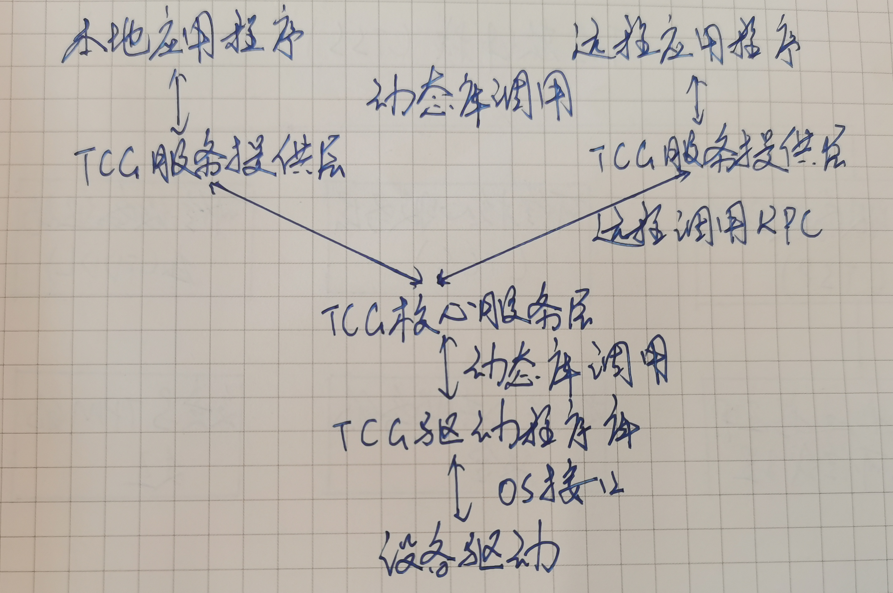 本地应用程序
远程应用程序
动态库调用
TCG服务提供层
TCG服务提供层
远程调用RPC
TCG核心服务层
动态库调用
TCG驱动程序库
OS接口
设备驱动